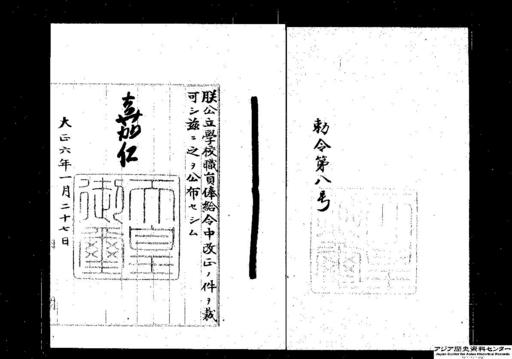 勅令第八号
朕公立學校職員俸給令中改正ノ件ヲ裁
可シ茲ニ之ヲ公布セシム
嘉仁
天皇
御璽
大正六年一月二十七日
アジア歴史資料センター
Japan Center for Asian Historical Records